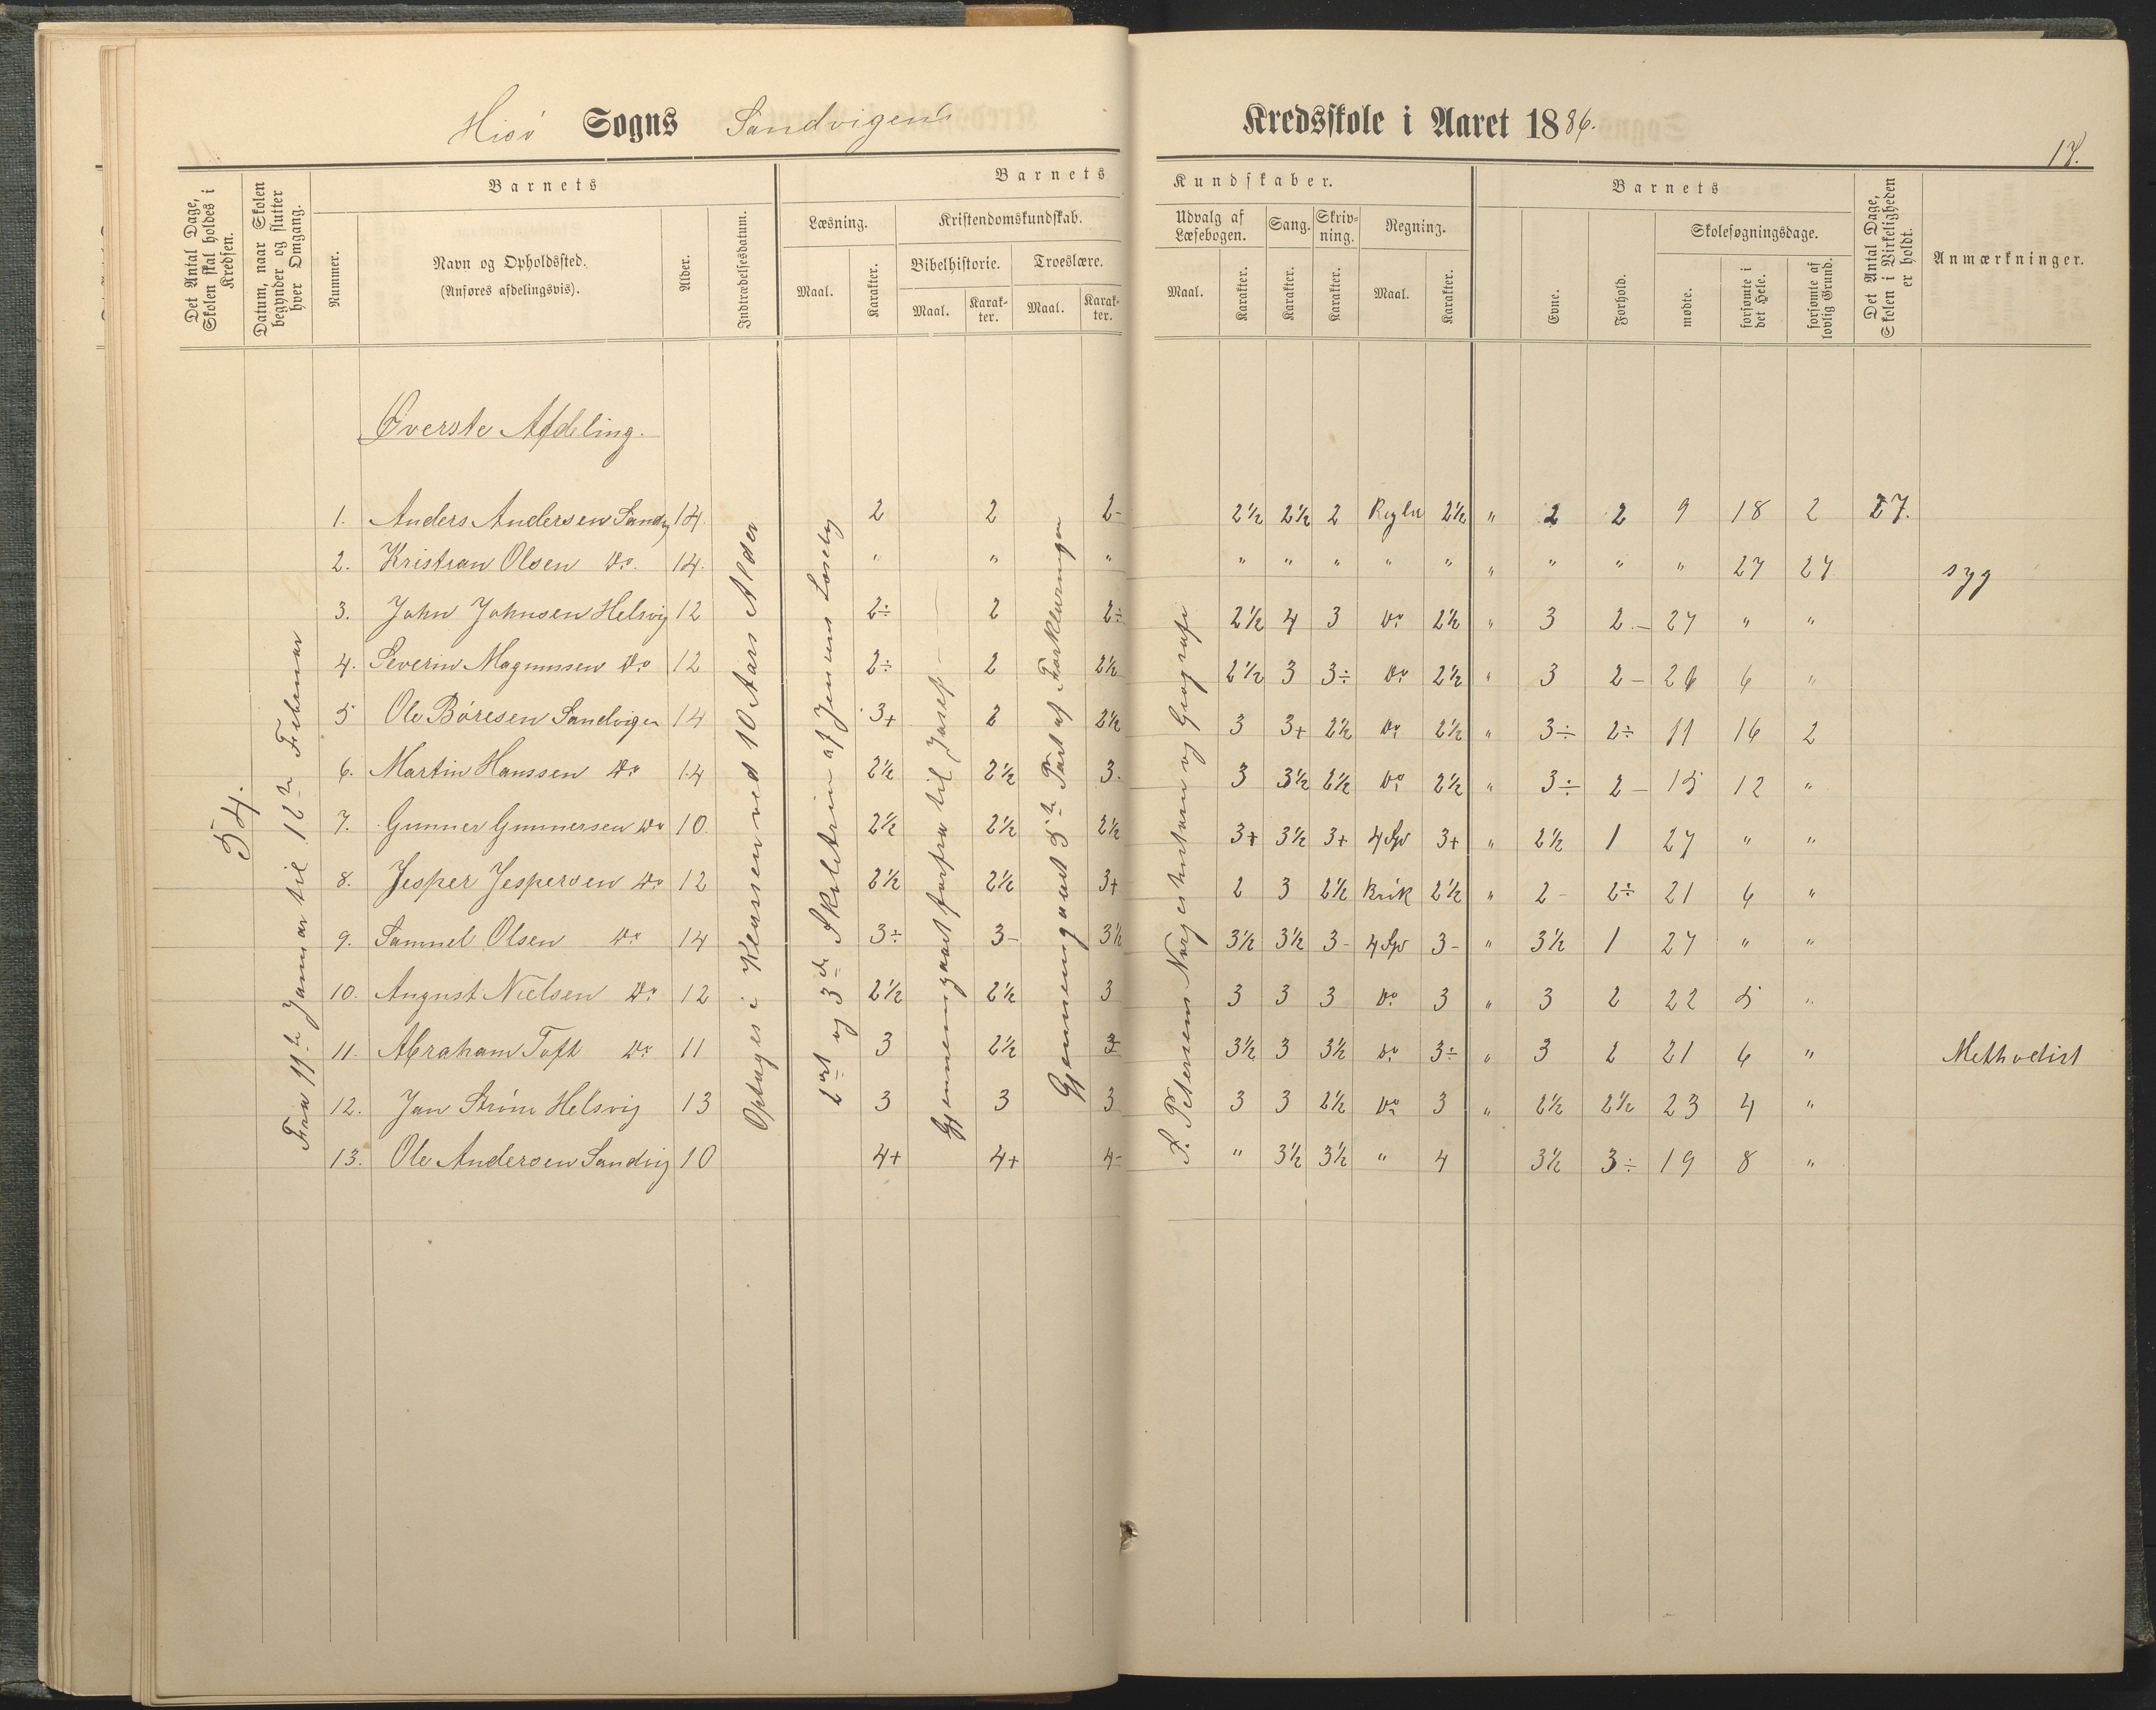 Hisö Sogns Sandvigens Kredsskole i Aaret 1886.
Det Antal Dage, Skolen skal holdes i Kredsen.
Datum, naar Skolen begynder og slutter hver Omgang.
Barnets
Nummer.
Navn og Opholdssted.
(Anføres afdelingsvis).
Alder.
Indtrædelsesdatum.
Barnets Kundskaber.
Læsning.
Maal.
Karakter.
Kristendomskundskab.
Bibelhistorie.
Maal.
Karakter.
Troeslære.
Maal.
Karakter.
Udvalg af Læsebogen.
Maal.
Karakter.
Sang.
Karakter.
Skrivning.
Karakter.
Regning.
Maal.
Karakter.
Barnets
Evne.
Forhold.
Skolesøgningsdage.
mødte.
forsømte i det Hele.
forsømte af lovlig Grund.
Det Antal Dage, Skolen i Virkeligheden er holdt.
Anmærkninger.
54.
Fra 11te Januar til 12te Februar
Øverste Afdeling.
Optages i Klassen ved 10 Aars Alder
2det og 3de Skoletrin af Jensens Læsebog
Gjennemgaaet forfra til Josef
Gjennemgaaet 5te Part af Forklaringen
S. Petersens Norgeshistorie og Geografi
1. Anders Andersen Sandvig 14. 2 2 2- 2½ 2½ 2 Regler 2½ " 2 2 9 18 2 27.
2. Kristian Olsen Do. 14. " " " " " " " " " " " " 27 27 syg
3. John Johnsen Helsvig 12 2÷ 2 2÷ 2½ 4 3 Do 2½ " 3 2- 27 " "
4. Severin Magnussen Do 12 2÷ 2 2½ 2½ 3 3÷ Do 2½ " 3 2- 26 6 "
5 Ole Børesen Sandvigen 14 3+ 2 2½ 3 3+ 2½ Do 2½ " 3÷ 2÷ 11 16 2
6. Martin Hanssen Do 14 2½ 2½ 3. 3 3½ 2½ Do 2½ " 3÷ 2- 15 12 "
7. Gunner Gunnersen Do 10. 2½ 2½ 2½ 3+ 3½ 3+ 4 Sp 3+ " 2½ 1 27 " "
8. Jesper Jespersen Do 12 2½ 2½ 3+ 2 3 2½ Brök 2½ " 2- 2÷ 21 6 "
9. Samuel Olsen Do 14 3÷ 3- 3½ 3½ 3½ 3- 4 Sp 3- " 3½ 1 27 " "
10. August Nielsen Do 12 2½ 2½ 3 3 3 3 Do 3 " 3 2 22 5 "
11. Abraham Toft Do 11 3 2½ 3 3½ 3 3½ Do 3÷ " 3 2 21 6 " Methodist
12. Jan Strøm Helsvig 13 3 3 3 3 3 2½ Do 3 " 2½ 2½ 23 4 "
13. Ole Andersen Sandvig 10 4+ 4+ 4- " 3½ 3½ " 4 3½ 3÷ 19 8 "